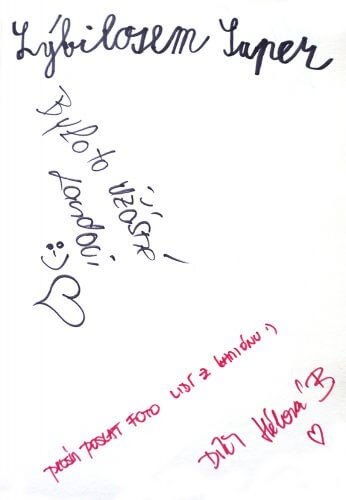 Lýbilosem Super
Bylo to
úžasné!
prosím poslat foto lidí z kaňónu :)
Díky Helena B